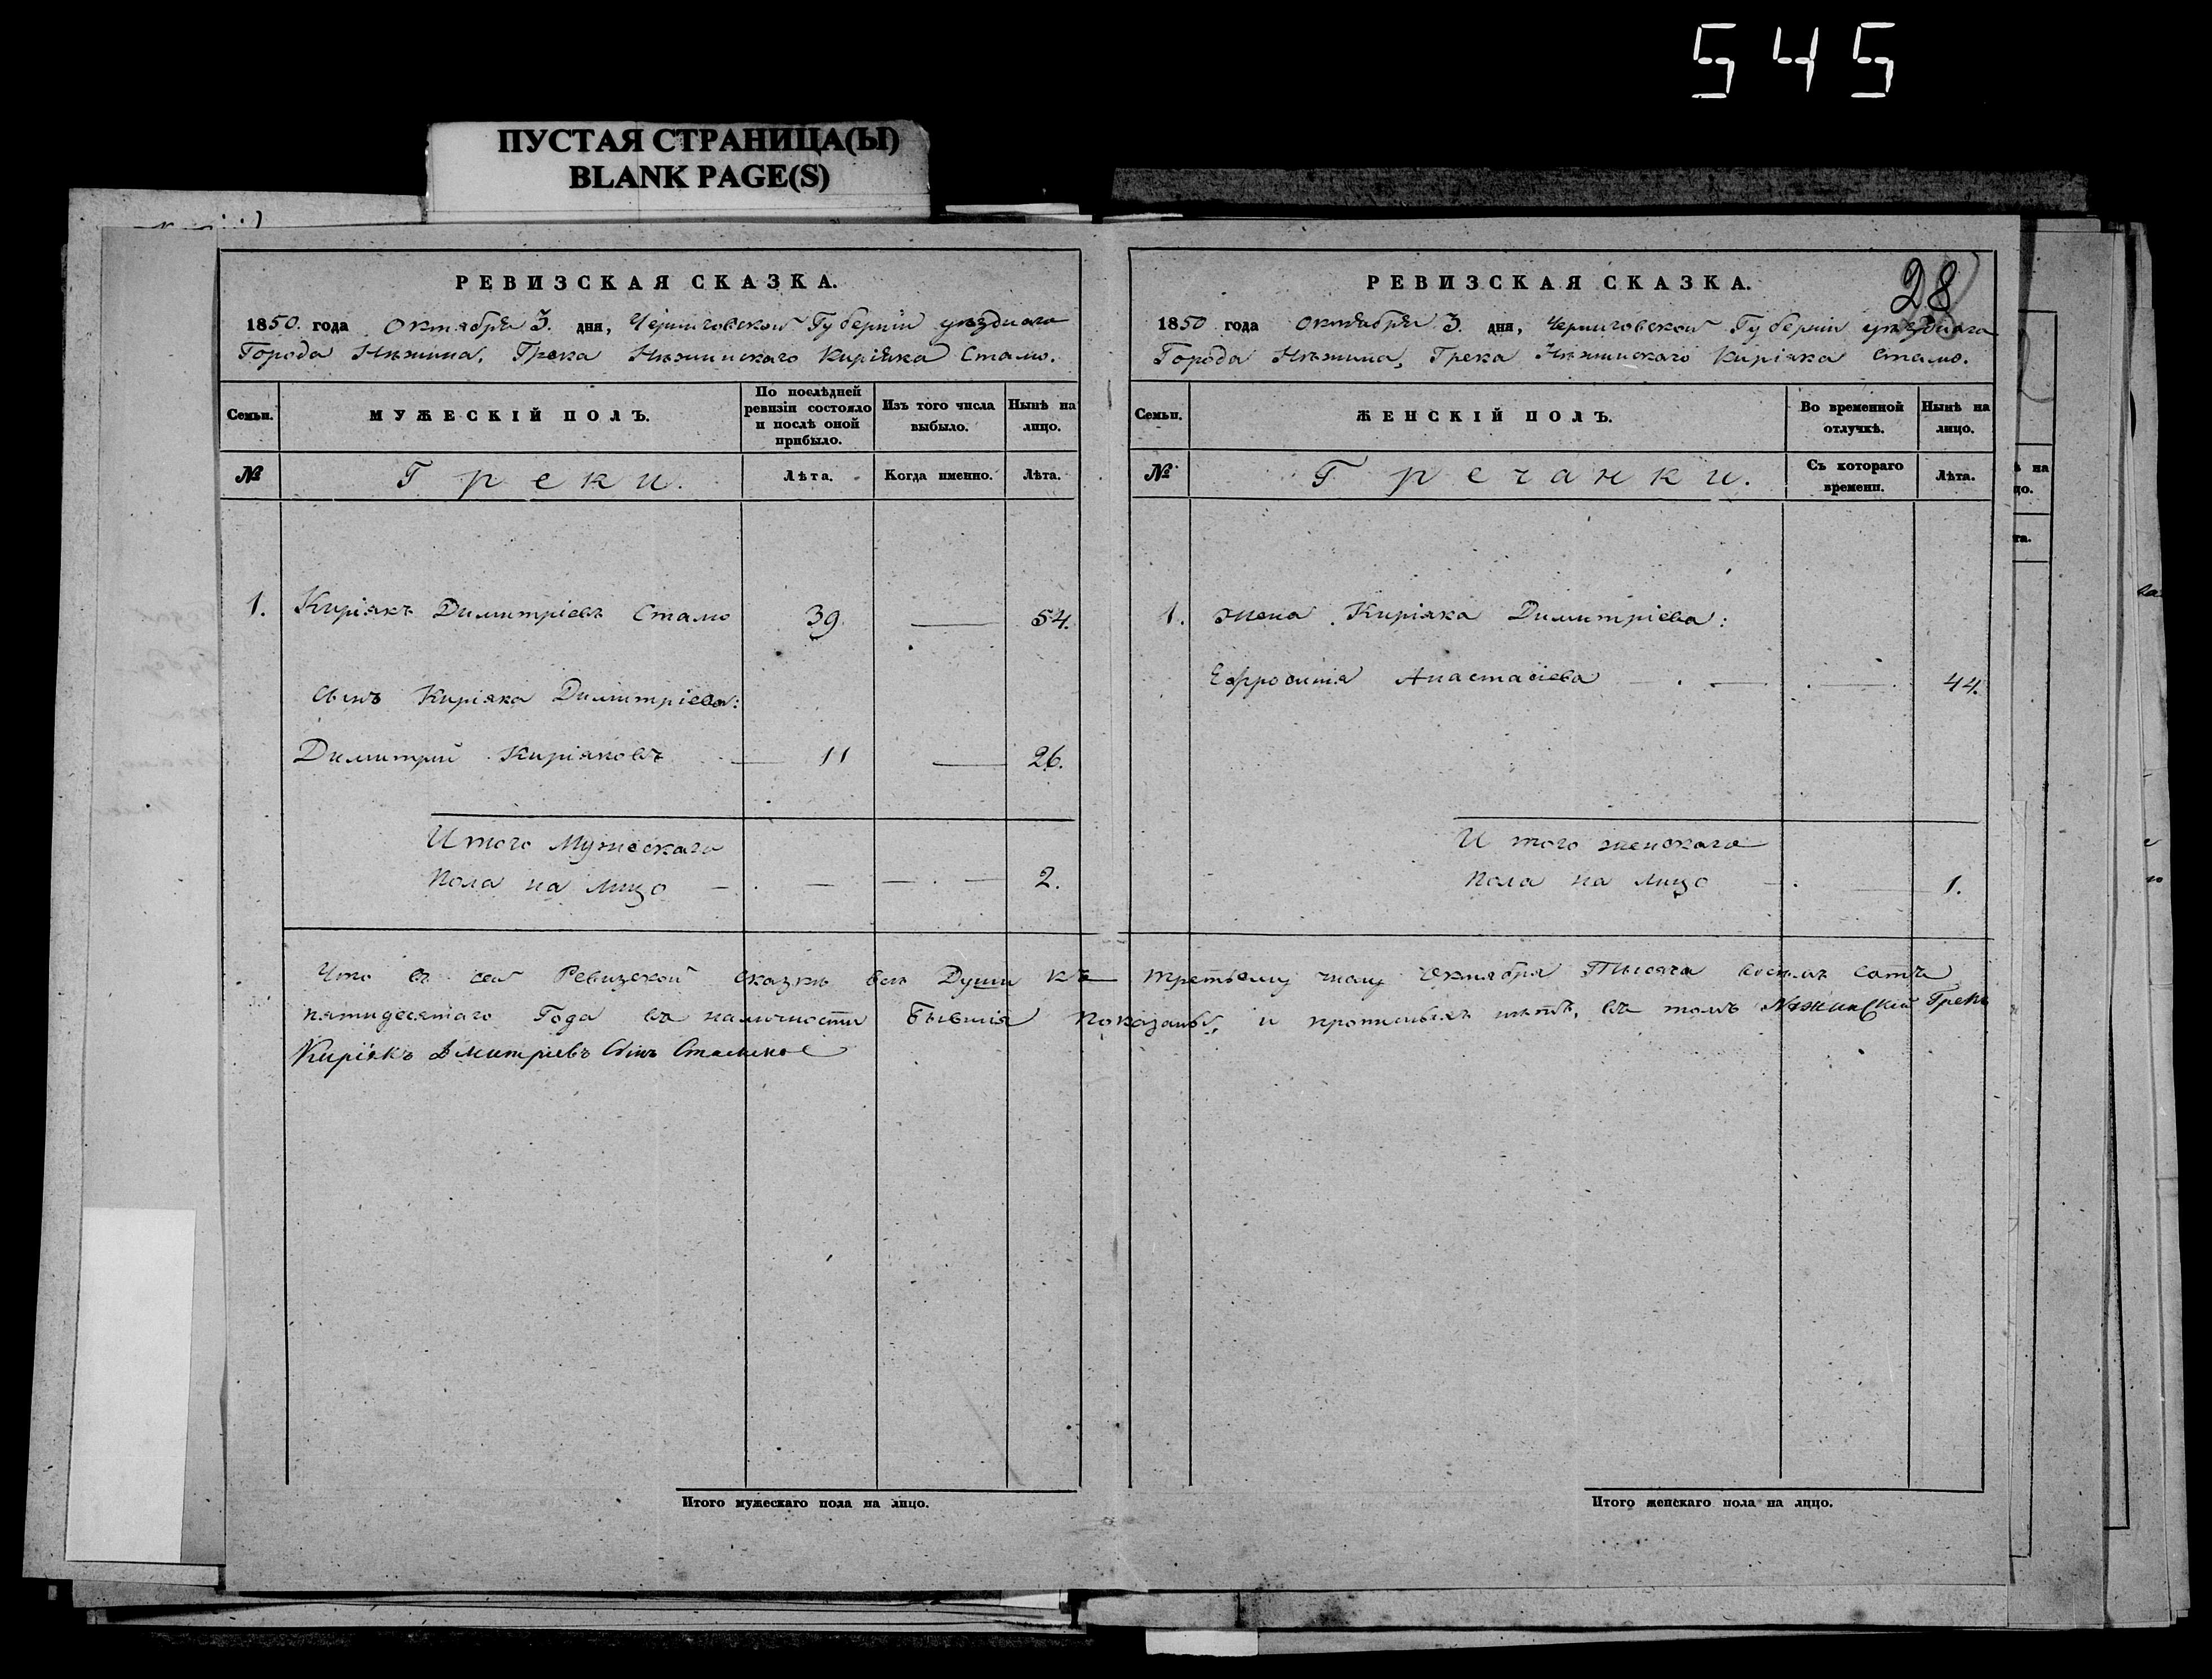 545
ПУСТАЯ СТРАНИЦА(Ы)
BLANK PAGE(S)
РЕВИЗСКАЯ СКАЗКА.
1850. года Октября 3. дня, Черниговской Губерніи уѣзднаго
Города Нѣжина, Грека Нѣжинскаго Киріяка Стамо.
Семьи.
МУЖЕСКІЙ ПОЛЪ.
По послѣдней ревизіи состояло и послѣ оной прибыло.
Изъ того числа выбыло.
Нынѣ на лицо.
№
Греки.
Лѣта.
Когда именно.
Лѣта.
1. Киріякъ Димитріевъ Стамо 39 — 54.
Сынъ Киріяка Димитріева:
Димитрій Киріяковъ — 11 — 26.
Итого Мужескаго
Пола на лицо — 2.
28
РЕВИЗСКАЯ СКАЗКА.
1850 года Октября 3. дня, Черниговской Губерніи уѣзднаго
Города Нѣжина, Грека Нѣжинскаго Киріяка Стамо.
Семьи.
ЖЕНСКІЙ ПОЛЪ.
Во временной отлучкѣ.
Нынѣ на лицо.
№
Гречанки.
Съ котораго времени.
Лѣта.
1. Жена Киріяка Димитріева:
Ефросинія Анастасіева — 44.
Итого женскаго
Пола на лицо — 1.
Что въ сей Ревизской сказкѣ всѣ Души къ третьему числу Октября Тысяча восемь сотъ
пятидесятаго Года въ наличности бывшія показаны, и прописныхъ нѣтъ, въ томъ Нѣжинскій Грекъ
Киріякъ Дмитріевъ Сынъ
Итого мужескаго пола на лицо.
Итого женскаго пола на лицо.